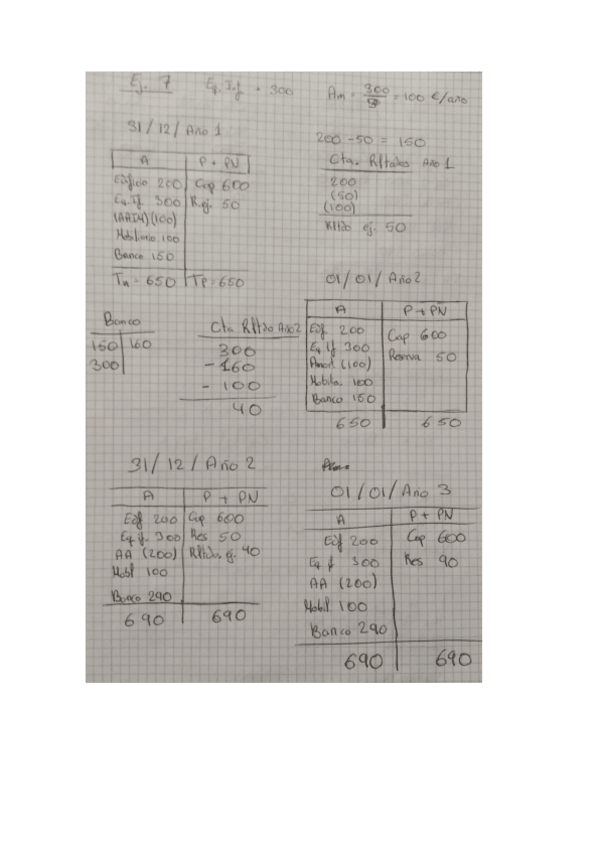 Ej. 7
Eq. Inf = 300
Am = 300/3 = 100 €/año
31/12/Año 1
A | P + PN
Edificio 200 | Cap 600
Eq. If 300 | R.ej. 50
(AAIM)(100)
Mobiliario 100
Banco 150
Tn = 650 | TP = 650
200 - 50 = 150
Cta. Rltados Año 1
200
(50)
(100)
Rltdo ej. 50
01/01/Año 2
A | P + PN
Edf. 200 | Cap 600
Eq. If 300 | Reserva 50
Amort (100)
Mobila. 100
Banco 150
650 | 650
Banco
150 | 160
300
Cta Rltdo Año 2
300
- 160
- 100
40
31/12/Año 2
A | P + PN
Edf 200 | Cap 600
Eq. if. 300 | Res 50
AA (200) | Rltdos ej. 40
Mobil 100
Banco 290
690 | 690
01/01/Año 3
A | P + PN
Edf 200 | Cap 600
Eq. f 300 | Res 90
AA (200)
Mobil 100
Banco 290
690 | 690